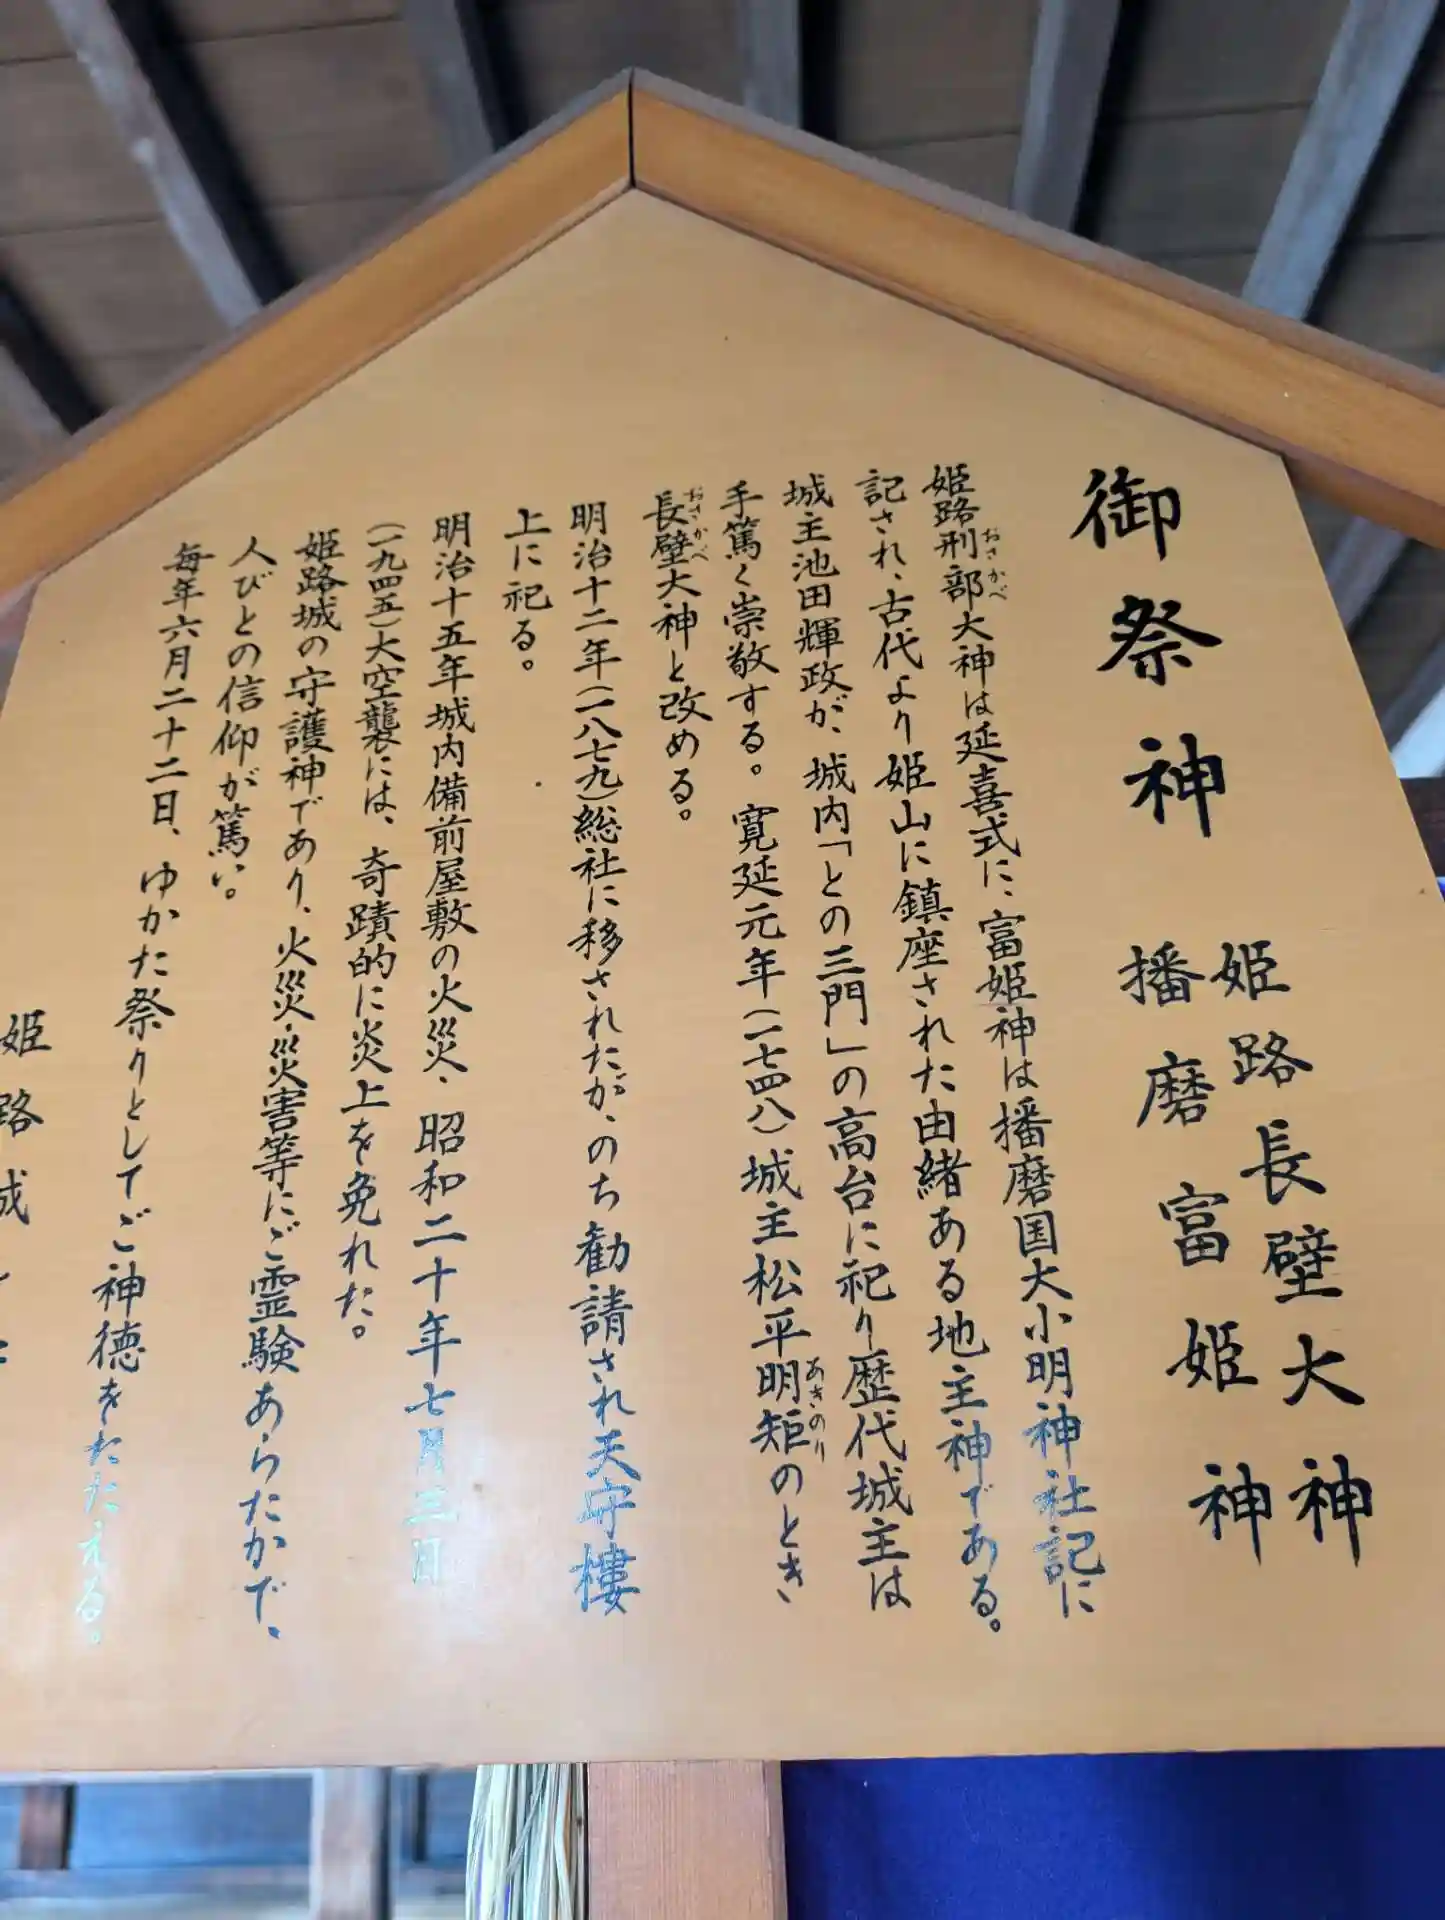 御祭神
姫路長壁大神
播磨富姫神
姫路刑部大神は延喜式に、富姫神は播磨国大小明神社記に
おさかべ
記され、古代より姫山に鎮座された由緒ある地主神である。
城主池田輝政が、城内「との三門」の高台に祀り歴代城主は
手篤く崇敬する。寛延元年(一七四八)城主松平明矩のとき
あきのり
長壁大神と改める。
おさかべ
明治十二年(一八七九)総社に移されたが、のち勧請され天守楼
上に祀る。
明治十五年城内備前屋敷の火災、昭和二十年七月三日
(一九四五)大空襲には、奇蹟的に炎上を免れた。
姫路城の守護神であり、火災・災害等にご霊験あらたかで、
人びとの信仰が篤い。
毎年六月二十二日、ゆかた祭りとしてご神徳をたたえる。
姫路城